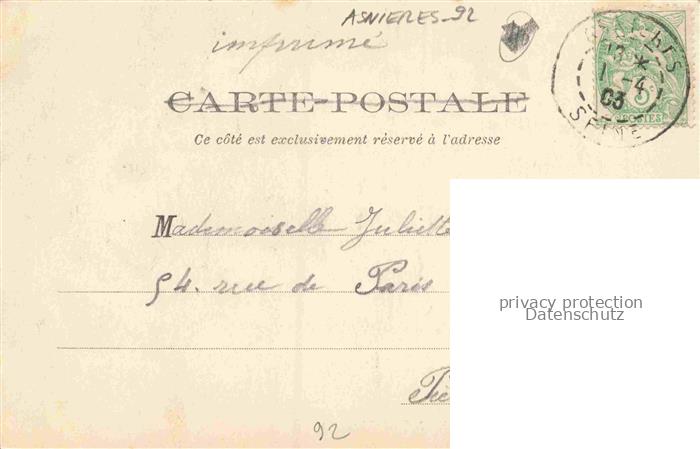 ASNIERES-92
imprimé
CARTE-POSTALE
Ce côté est exclusivement réservé à l'adresse
Mademoiselle Juliette
54. rue de Paris
privacy protection
Datenschutz
92
4
03
SEINE
5
POSTES